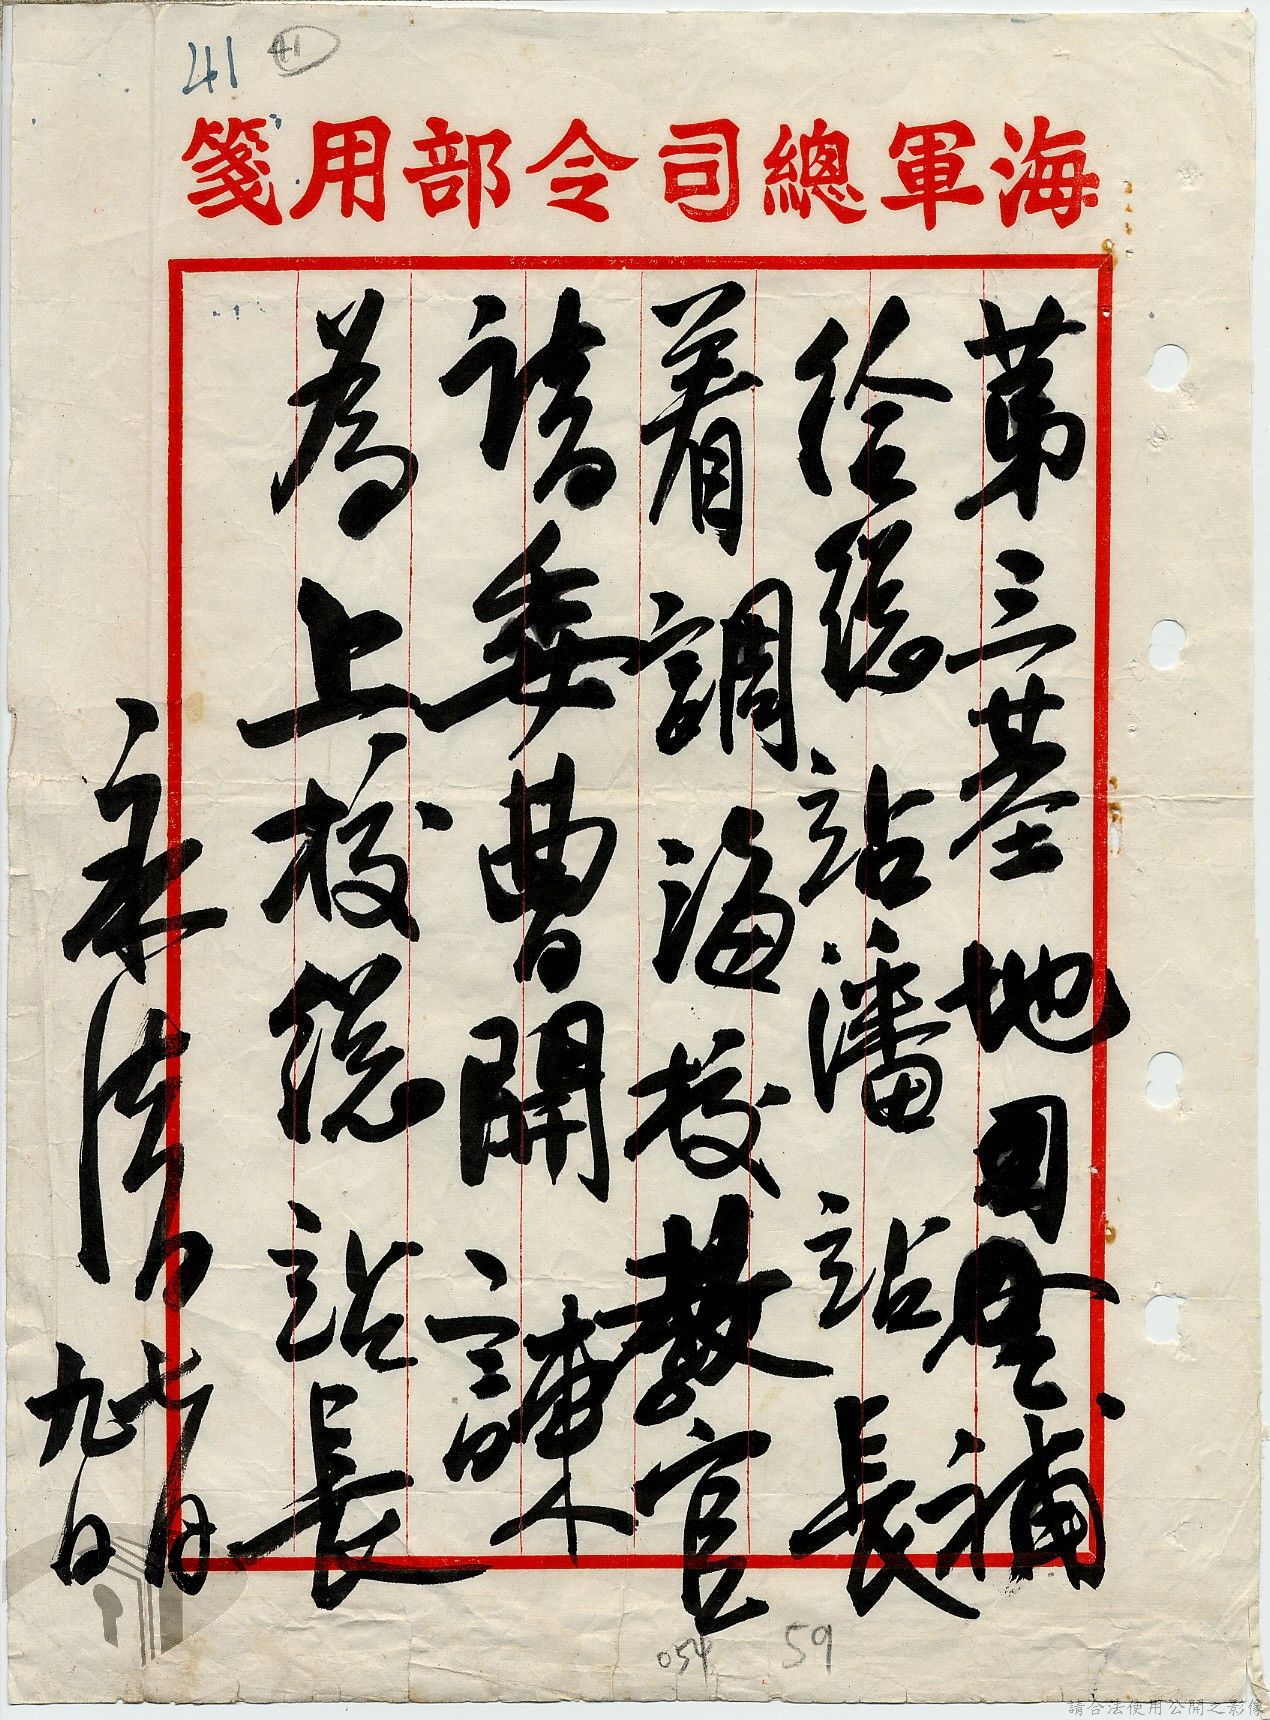 41
41
海軍總司令部用箋
第三基地司令補
給總站潘站長
着調海校教官
請委曹開諫
為上校總站長
永清
七月
九日
054
59
請合法使用公開之影像